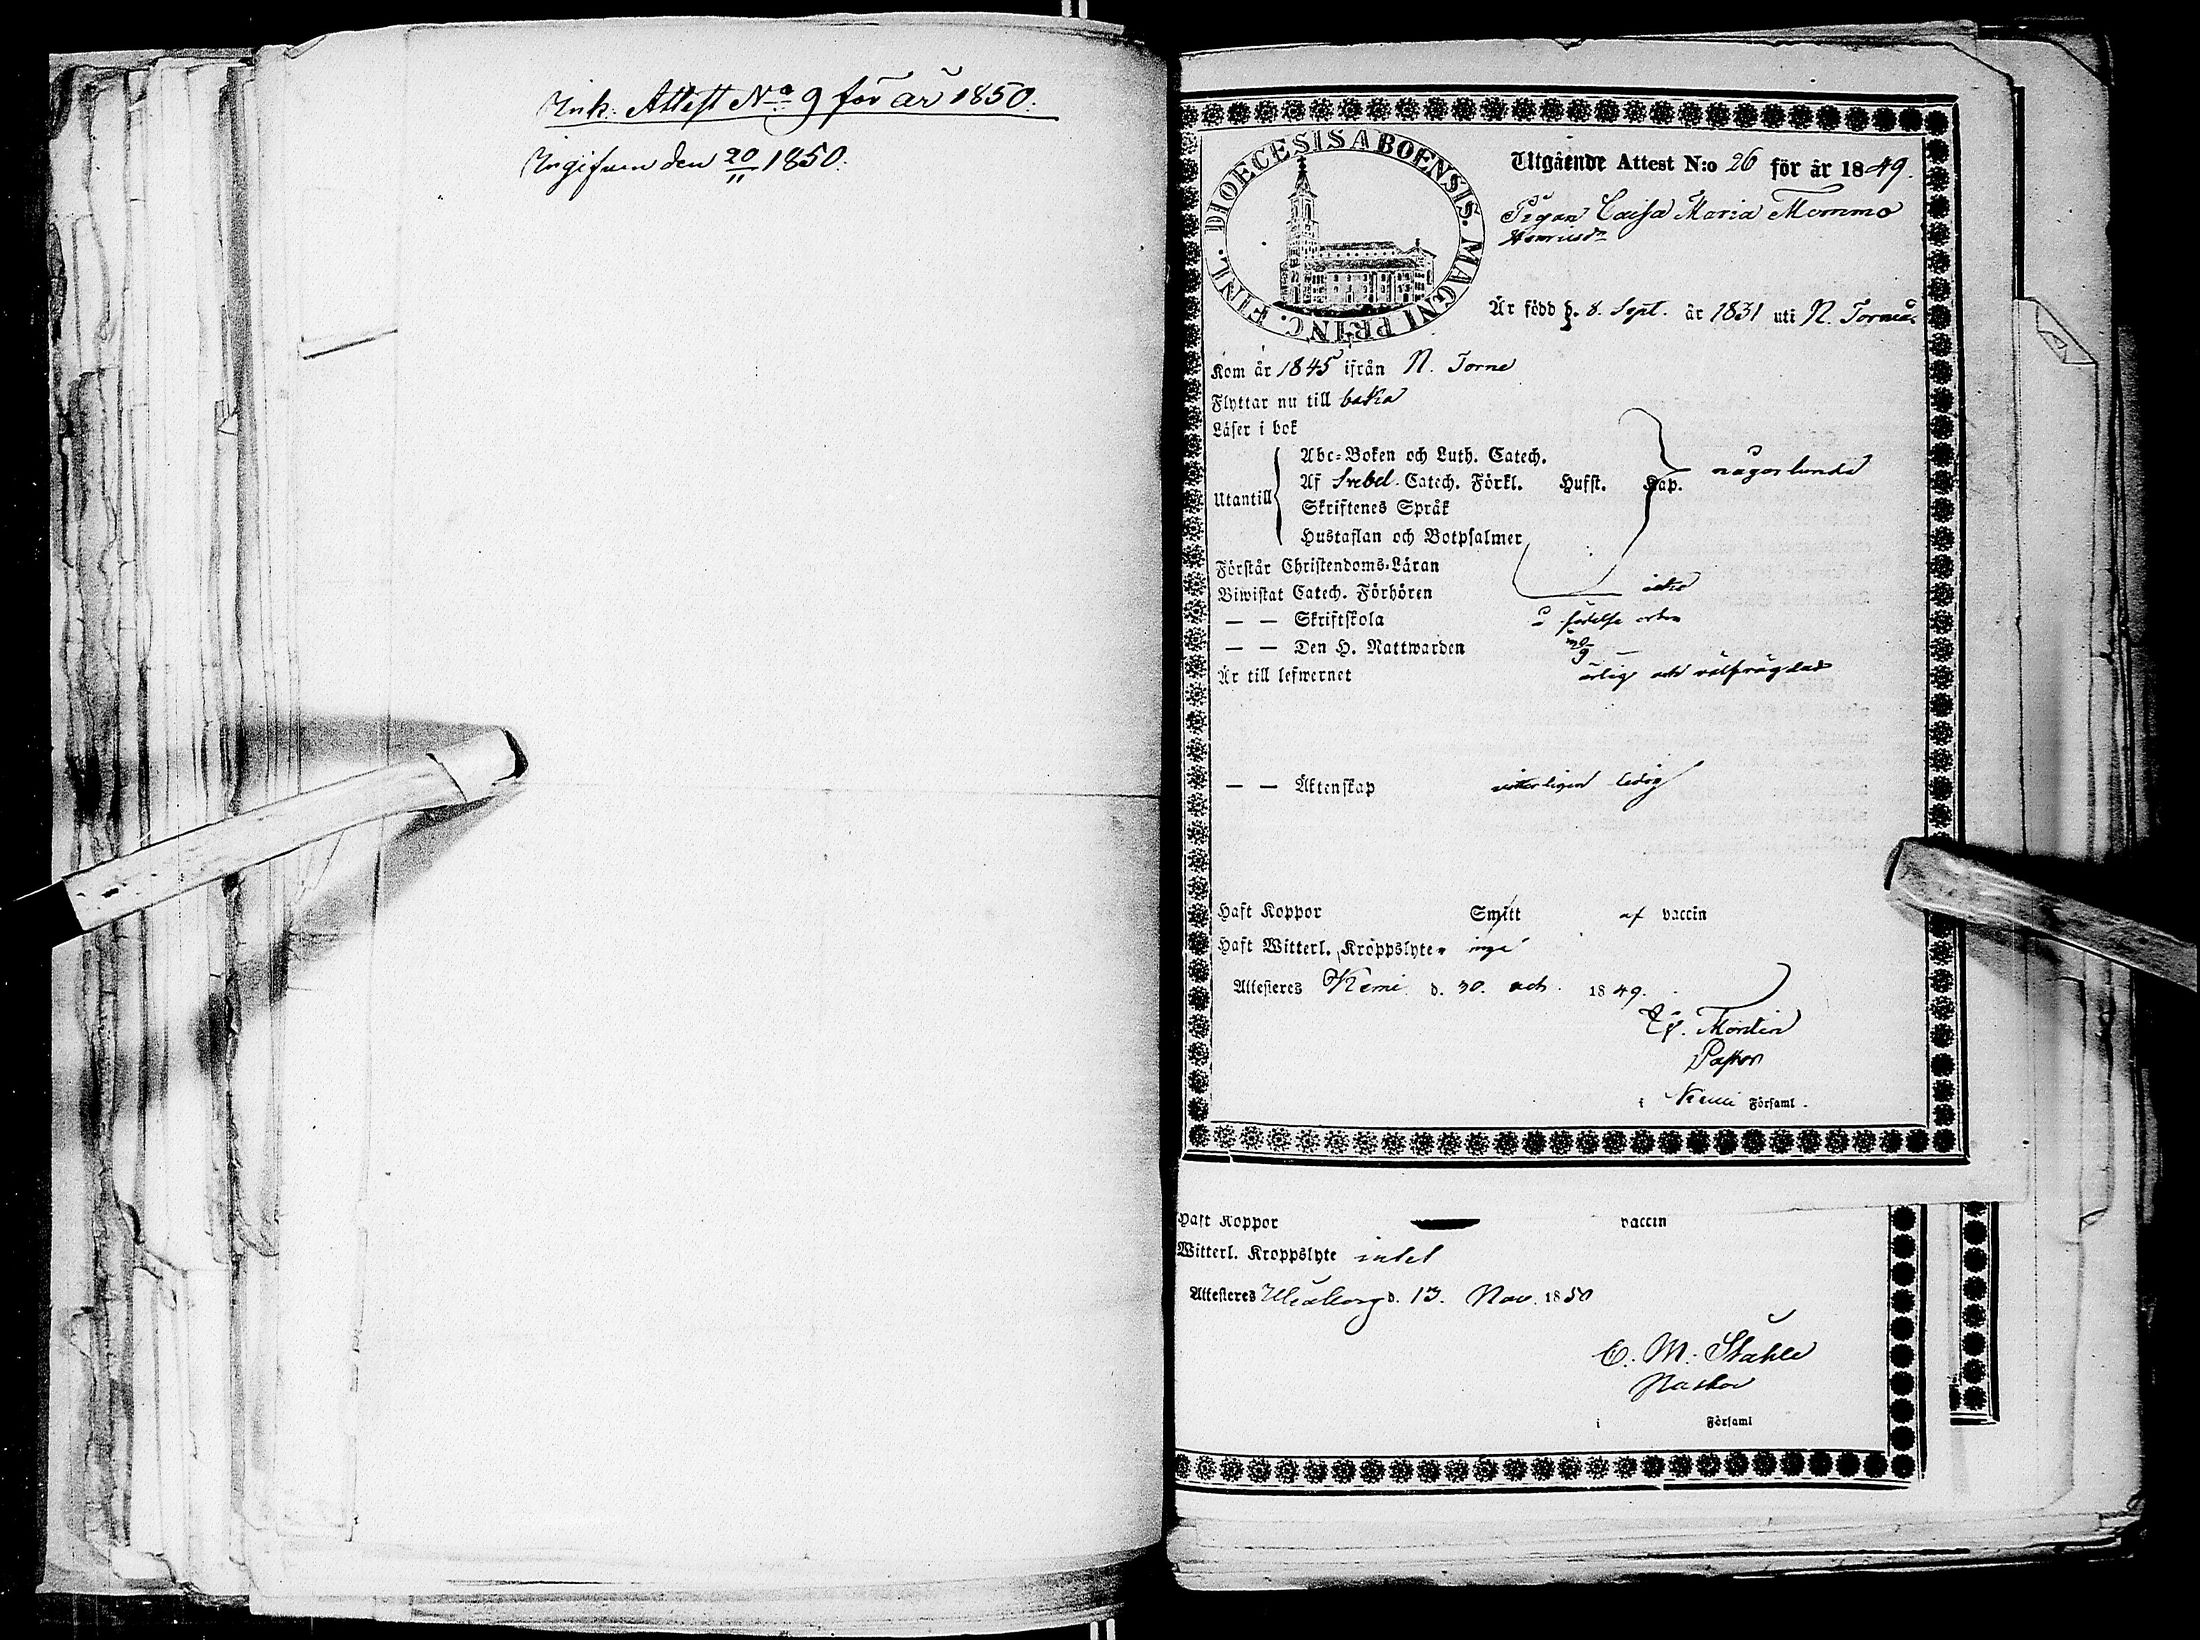 Ink. Attest No 9 för år 1850.
Ingifven den 20/11 1850.
DIOECESIS ABOENSIS. MAGNI PRINC. FINL.
Utgående Attest N:o 26 för år 1849.
Pigan Caisa Maria Mommo
Henricsdr
Är född d. 8. Sept. år 1831 uti N. Torneå
Kom år 1845 ifrån N. Torne
Flyttar nu till baka
Läser i bok
Utantill
Abc-Boken och Luth. Catech.
Af Svebel. Catech. Förkl. Hufst. Kap. någorlunda
Skriftenes Språk
Hustaflan och Botpsalmer
Förstår Christendoms-Läran
Biwistat Catech. Förhören icke
— — Skriftskola i födelse orten
— — Den H. Nattwarden
Är till lefwernet ärlig och välfrägdad
— — Äktenskap witterligen ledig
Haft Koppor Smitt af vaccin
Haft Witterl. Kroppslyte inga
Attesteres Kemi d. 30. och 1849.
Montin
Pastor
i Kemi Församl.
Haft Koppor vaccin
Witterl. Kroppslyte intet
Attesteres Uleåborg d. 13. Nov. 1850
C. M. Ståhle
Pastor
i Församl